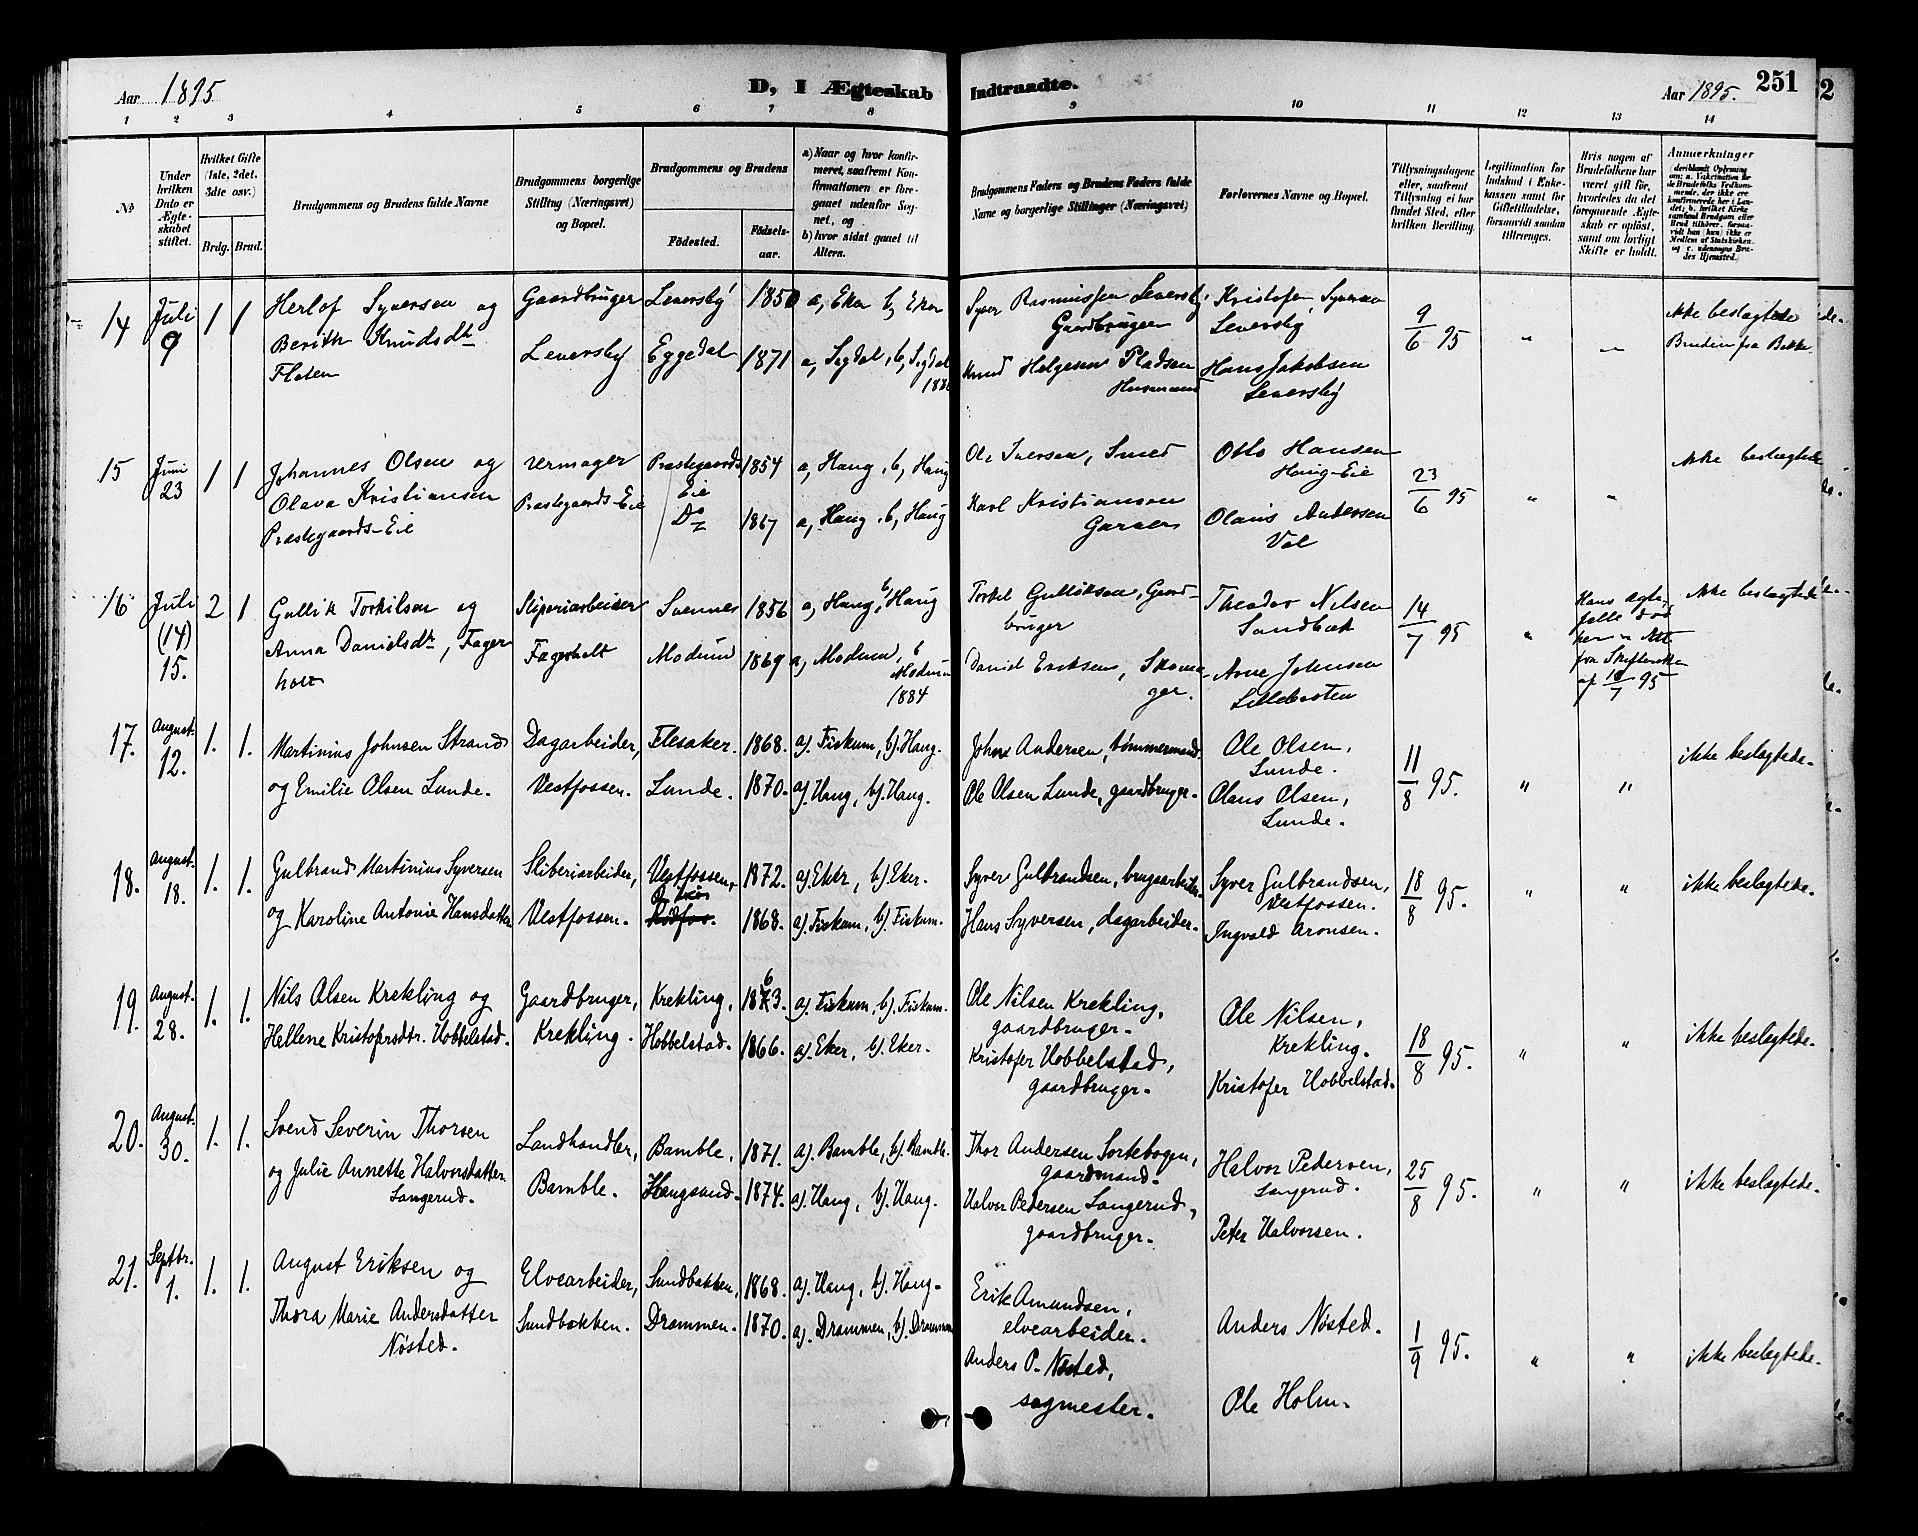 Aar 1895 D, I Ægteskab Indtraadte. Aar 1895. 251
1 2 3 4 5 6 7 8 9 10 11 12 13 14
No
Under hvilken Dato er Ægteskabet stiftet.
Hvilket Gifte (1ste, 2det. 3die osv.)
Brdg. Brud.
Brudgommens og Brudens fulde Navne
Brudgommens borgerlige Stilling (Næringsvei) og Bopæl.
Brudgommens og Brudens
Födested. Födselsaar.
a) Naar og hvor konfirmeret, saafremt Konfirmationen er foregaaet udenfor Sognet, og
b) hvor sidst gaaet til Alters.
Brudgommens Faders og Brudens Faders fulde Navne og borgerlige Stillinger (Næringsvei)
Forlovernes Navne og Bopæl.
Tillysningsdagene eller, saafremt Tillysning ei har fundet Sted, efter hvilken Bevilling.
Legitimation for Indskud i Enkekassen samt for Giftetilladelse, forsaavidt saadan tiltrænges.
Hvis nogen af Brudefolkene har været gift för, hvorledes da det foregaaende Ægteskab er oplöst, samt om lovligt Skifte er holdt.
Anmærkninger
14 Juli 9 1 1 Herlof Syversen og
Berith Knudsdtr
Flaten
Gaardbruger
Leversby
Leversby 1850 a, Eker b, Eker
Eggedal 1871 a, Sigdal, b, Sigdal
Syver Rasmussen Leversby
Gaardbruger
Knud Helgesen Pladsen
Husmand
Kristofer Syversen
Leversby
Hans Jakobsen
Leversby
9/6 95 " " ikke beslægtede
Bruden fra Bakke
15 Juni 23 1 1 Johannes Olsen og
Olava Kristiansen
Præstegaards-Eie
Urmager
Præstegaards-Eie
Præstegaards Eie 1854 a, Haug, b, Haug
Do 1867 a, Haug, b, Haug
Ole Iversen, Smed
Karl Kristiansen
Garver
Otto Hansen
Haug-Eie
Olaus Andersen
Vol
23/6 95 " " ikke beslægtede
16 Juli (14) 15. 2 1 Gullik Torkilsen og
Anna Danielsdtr, Fager
holt
Sliperiarbeider
Fagerholt
Svennes 1856 a, Haug, b, Haug
Modum 1869 a, Modum, b Modum 1884
Torkel Gulliksen, Gaard-
bruger
Daniel Eriksen, Skoma-
ger.
Theodor Nilsen
Sandbæk
Arne Johnsen
Lillebosten
14/7 95 " Hans Ægte-
fælle död
fra Skifteretten
af 7 95
ikke beslægtede
17. August. 12. 1. 1. Martinius Johnsen Strand
og Emilie Olsen Lunde.
Dagarbeider,
Vestfossen.
Flesaker. 1868. a). Fiskum, b). Haug.
Lunde. 1870. a). Haug, b). Haug.
Johns Andersen, tømmermand.
Ole Olsen Lunde, gaardbruger.
Ole Olsen,
Lunde.
Olaus Olsen,
Lunde.
11/8 95. " " ikke beslægtede.
18. August. 18. 1. 1. Gulbrand Martinius Syversen
og Karoline Antonie Hansdatter
Sliberiarbeider,
Vestfossen.
Vestfossen, 1872. a). Eker, b). Eker.
1868. a). Fiskum, b). Fiskum.
Syver Gulbrandsen, brugsarbeider.
Hans Syversen, dagarbeider.
Syver Gulbrandsen,
Vestfossen.
Ingvald Aronsen.
18/8 95. " " ikke beslægtede.
19. August. 28. 1. 1. Nils Olsen Krekling og
Hellene Kristofersdtr. Hobbelstad.
Gaardbruger,
Krekling.
Krekling, 1863. a). Fiskum, b). Fiskum.
Hobbelstad. 1866. a). Eker, b). Eker.
Ole Nilsen Krekling,
gaardbruger.
Kristofer Hobbelstad,
gaardbruger.
Ole Nilsen,
Krekling.
Kristofer Hobbelstad.
18/8 95. " " ikke beslægtede.
20. August. 30. 1. 1. Svend Severin Thorsen
og Julie Annette Halvorsdatter
Langerud.
Landhandler,
Bamble.
Bamble, 1871. a). Bamble, b). Bamble.
Haugsund. 1874. a). Haug, b). Haug.
Thor Andersen Sortebogen,
gaardmand.
Halvor Pedersen Langerud,
gaardbruger.
Halvor Pedersen,
Langerud.
Peter Halvorsen.
25/8 95. " " ikke beslægtede.
21. Septbr. 1. 1. 1. August Eriksen og
Thora Marie Andersdatter
Nøsted.
Elvearbeider,
Sundbakken.
Sundbakken, 1868. a). Haug, b). Haug.
Drammen. 1870. a). Drammen, b). Drammen
Erik Amundsen,
elvearbeider.
Anders P. Nøsted,
sagmester.
Anders Nøsted.
Ole Holm.
1/9 95. " " ikke beslægtede.